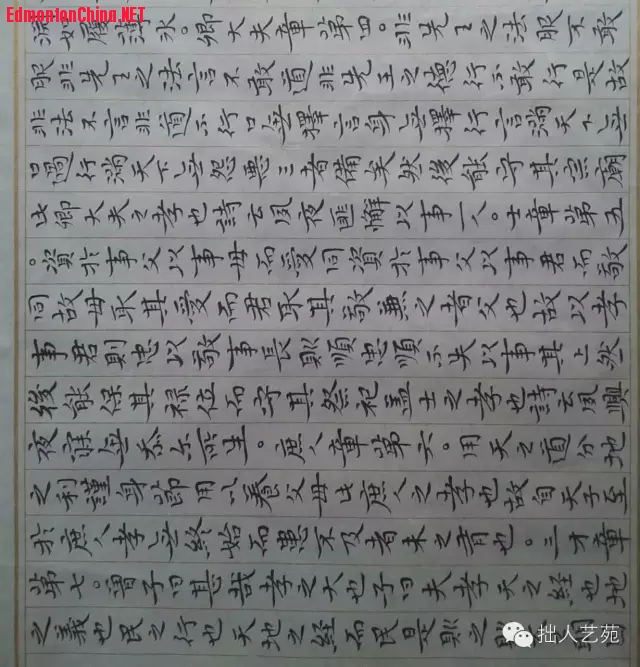 EdmontonChina.NET
深如履薄冰。卿大夫章第四。非先王之法服不敢
服非先王之法言不敢道非先王之德行不敢行是故
非法不言非道不行口无擇言身无擇行言滿天下无
口過行滿天下无怨惡三者備矣然後能守其宗廟
此卿大夫之孝也詩云夙夜匪懈以事一人。士章第五
。資於事父以事母而愛同資於事父以事君而敬
同故母取其愛而君取其敬兼之者父也故以孝
事君則忠以敬事長則順忠順不失以事其上然
後能保其祿位而守其祭祀蓋士之孝也詩云夙興
夜寐无忝尔所生。庶人章第六。用天之道分地
之利謹身節用以養父母此庶人之孝也故自天子至
於庶人孝无終始而患不及者未之有也。三才章
第七。曾子曰甚哉孝之大也子曰夫孝天之經也地
之義也民之行也天地之經而民是則之
拙人艺苑